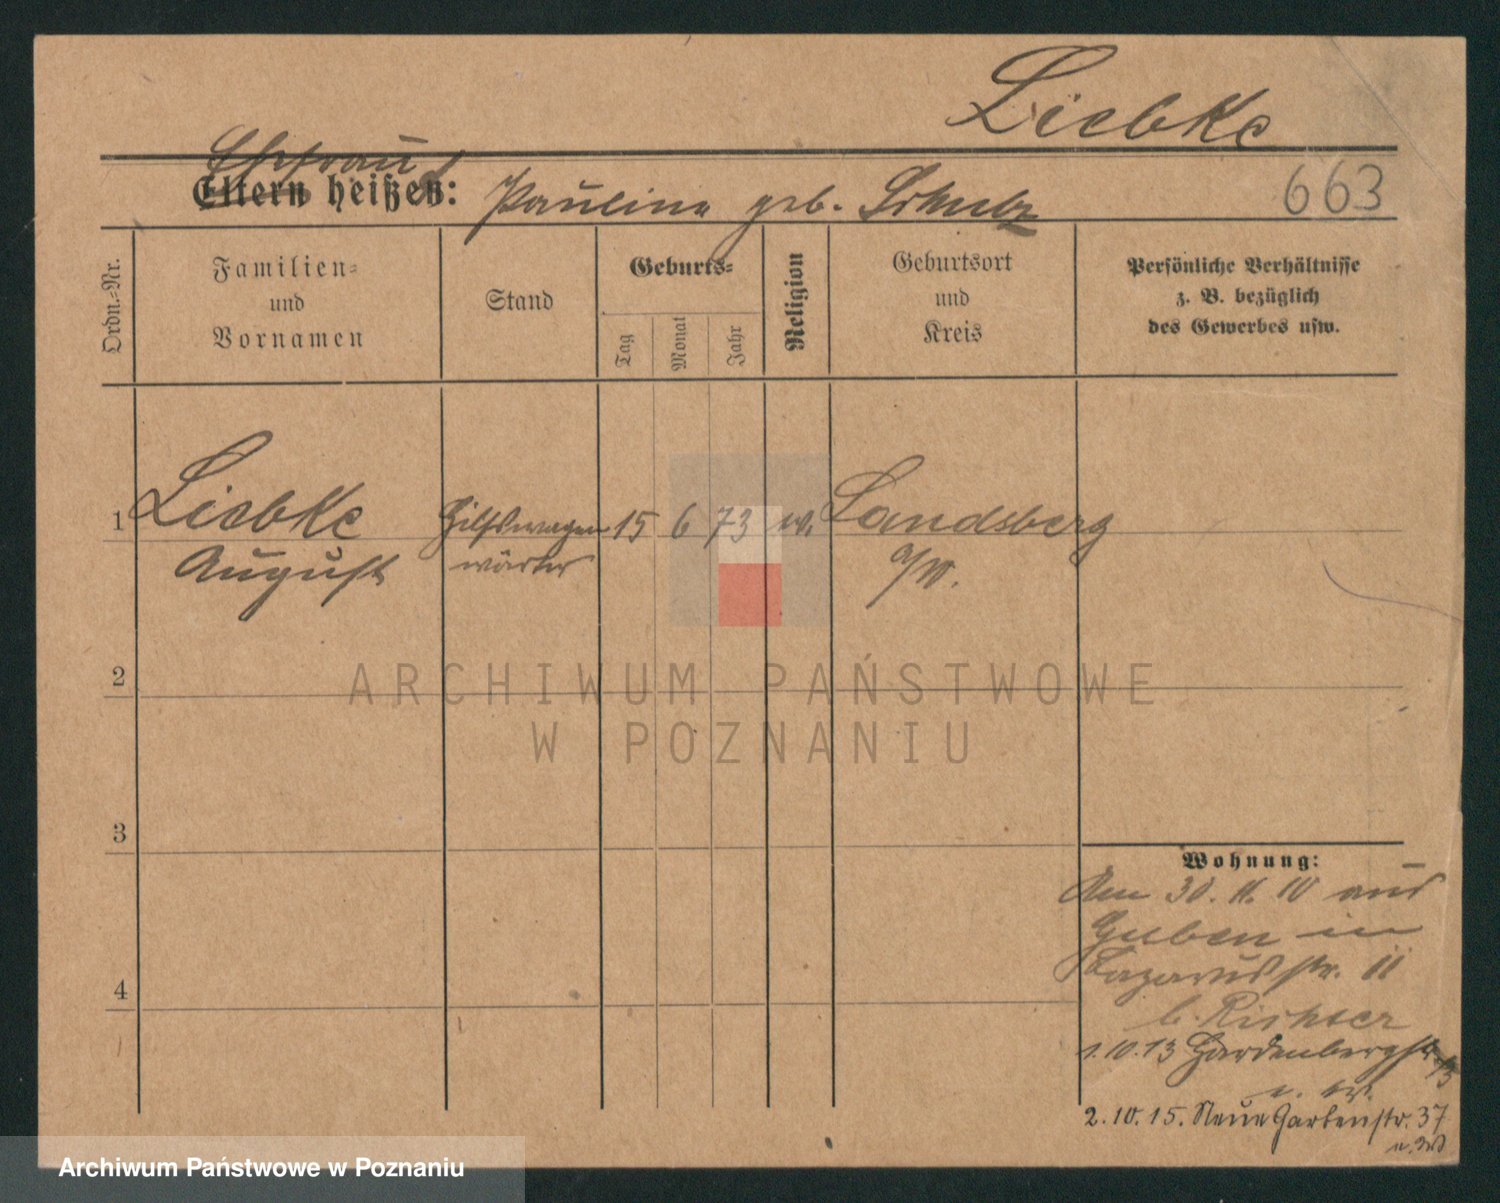 Liebke
Ehefrau
Eltern heißen: Pauline geb. Schulz
663
Ordn.-Nr.
Familien-
und
Vornamen
Stand
Geburts-
Tag
Monat
Jahr
Religion
Geburtsort
und
Kreis
Persönliche Verhältnisse
z. B. bezüglich
des Gewerbes usw.
1 Liebke Hilfswagen 15 6 73 ev. Landsberg
August wärter a/W.
2
3
4
ARCHIWUM PAŃSTWOWE
W POZNANIU
Wohnung:
Am 30. 11. 10 aus
Guben in
Lazarus str. 11
b. Richter
1.10.13 Hardenbergstr.
2.10.15. Neue Gartenstr. 37
Archiwum Państwowe w Poznaniu